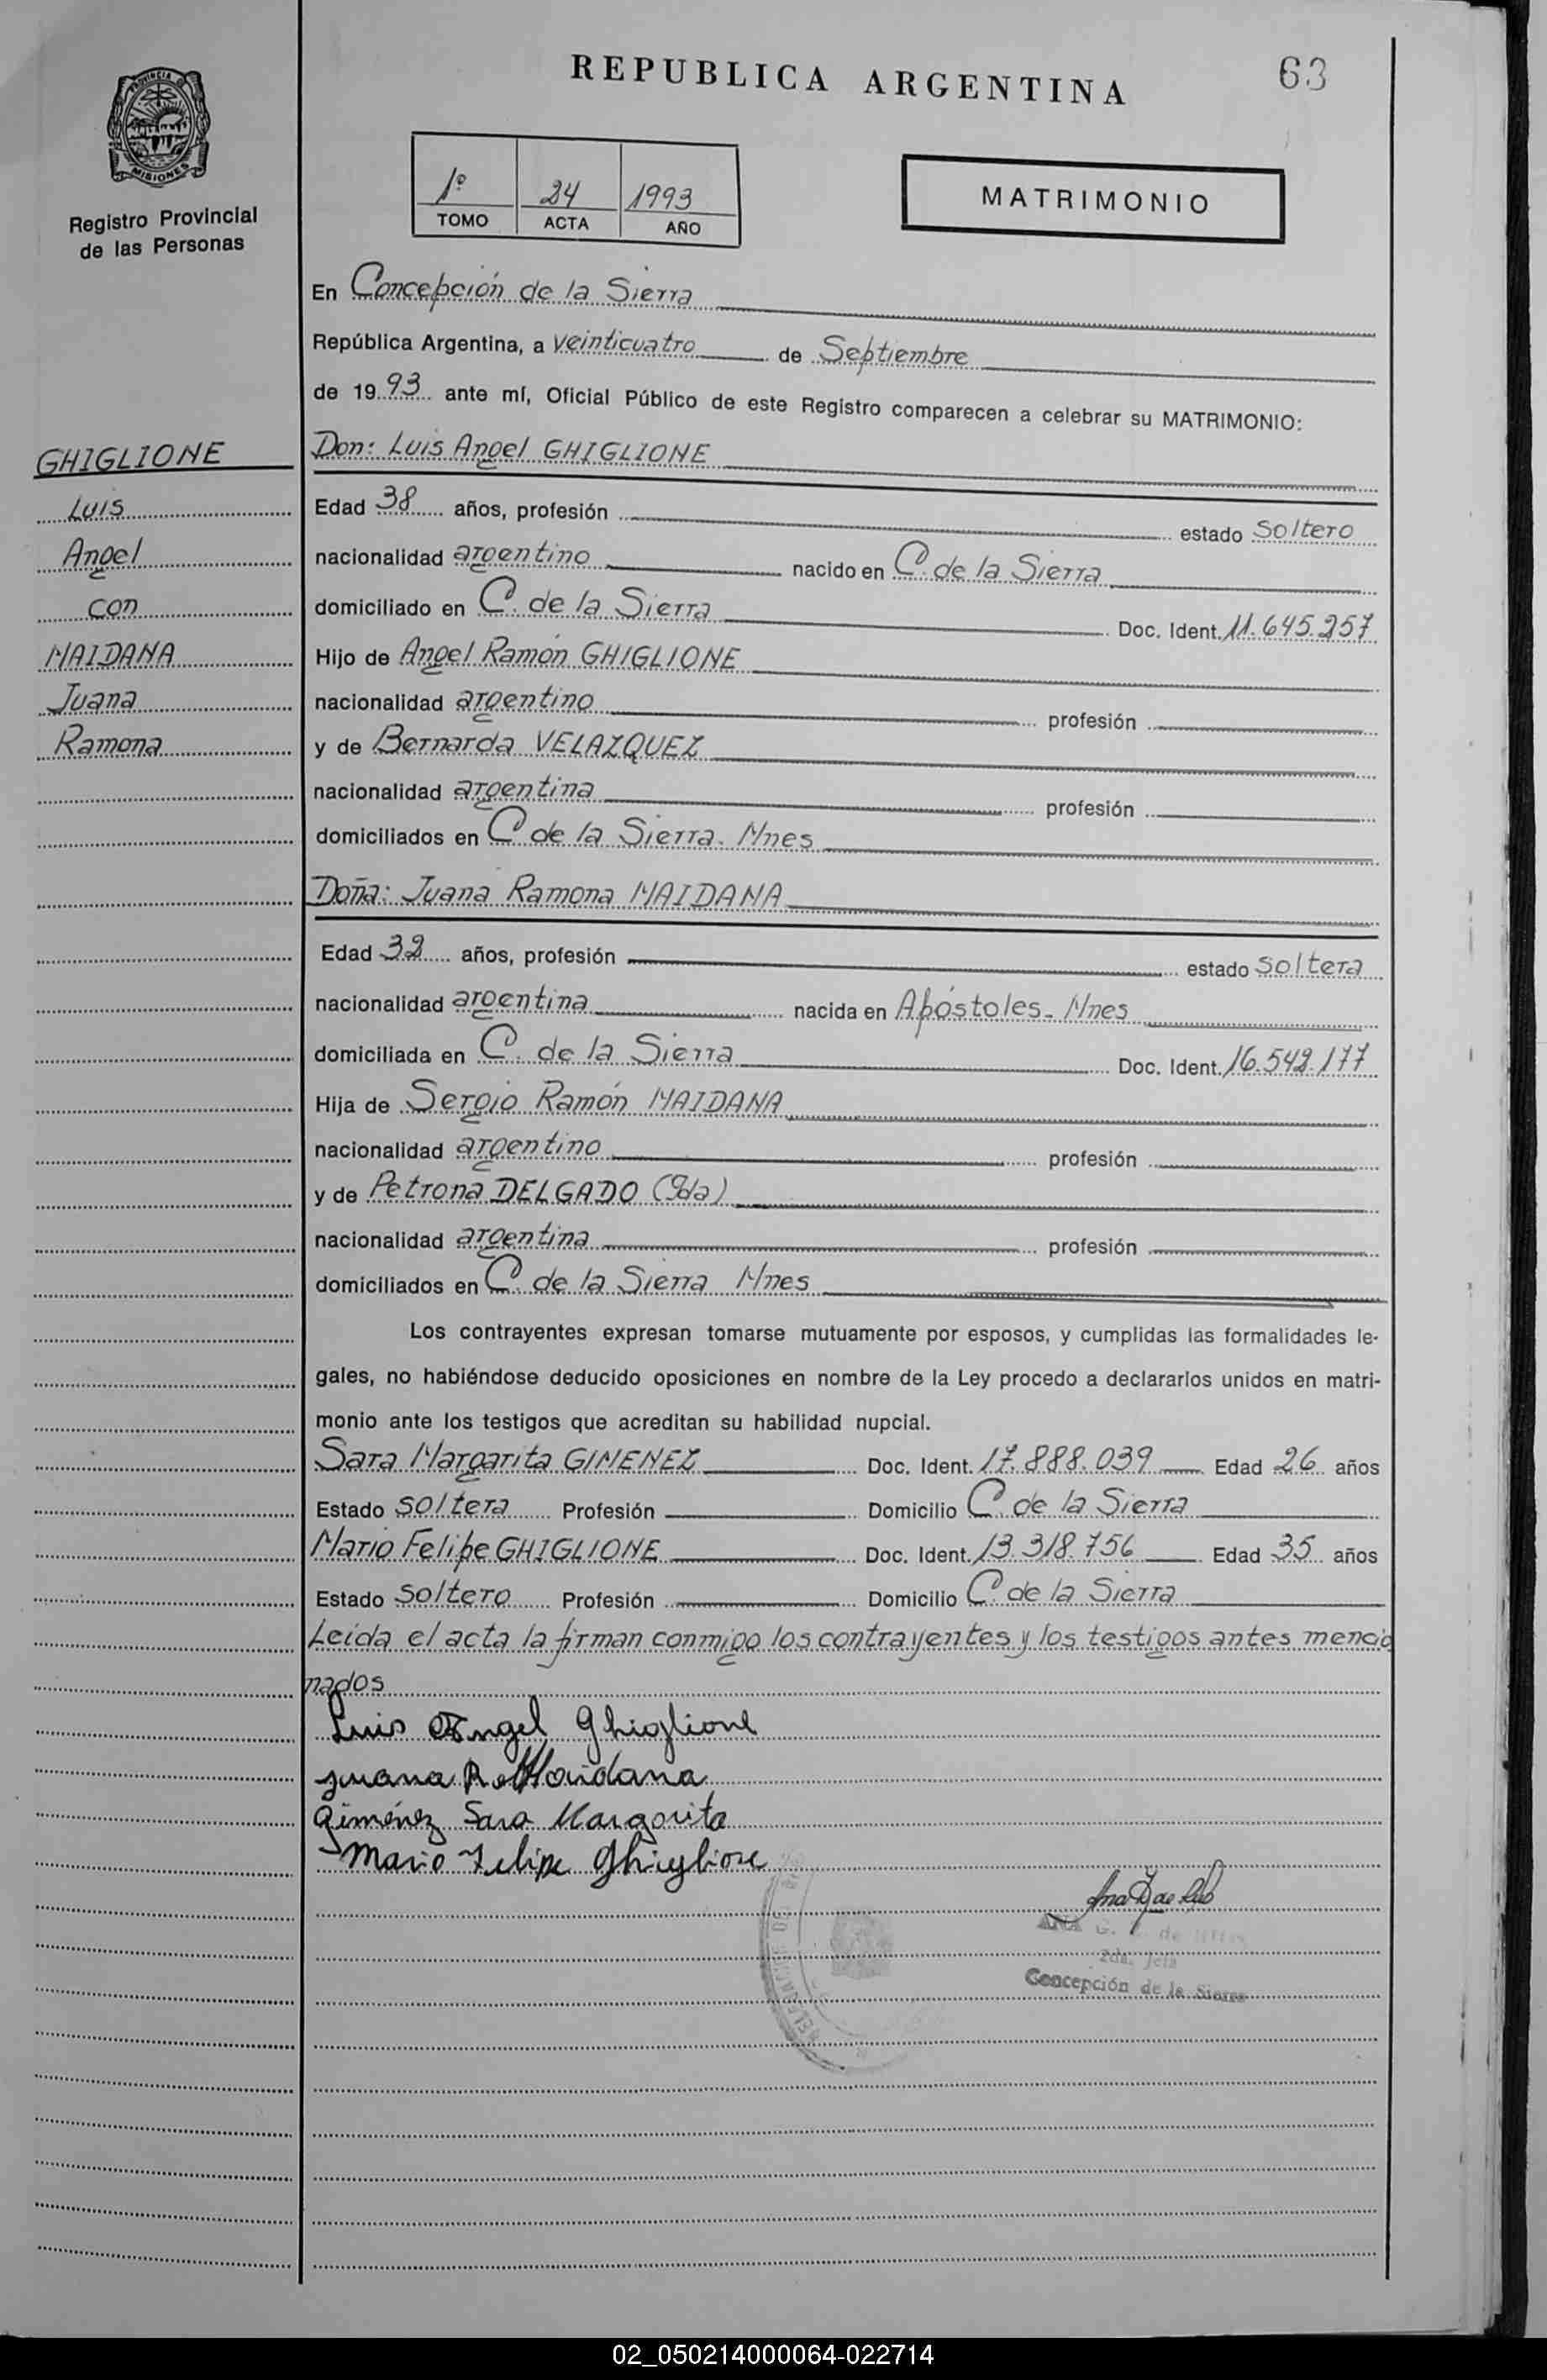 REPUBLICA ARGENTINA
63
PROVINCIA DE
MISIONES
Registro Provincial
de las Personas
1º 24 1993
TOMO ACTA AÑO
MATRIMONIO
En Concepción de la Sierra
República Argentina, a veinticuatro de Septiembre
de 1993 ante mí, Oficial Público de este Registro comparecen a celebrar su MATRIMONIO:
GHIGLIONE
Luis
Angel
con
MAIDANA
Juana
Ramona
Don: Luis Angel GHIGLIONE
Edad 38 años, profesión estado soltero
nacionalidad argentino nacido en C. de la Sierra
domiciliado en C. de la Sierra Doc. Ident. 11.645.257
Hijo de Angel Ramón GHIGLIONE
nacionalidad argentino profesión
y de Bernarda VELAZQUEZ
nacionalidad argentina profesión
domiciliados en C de la Sierra. Mnes
Doña: Juana Ramona MAIDANA
Edad 32 años, profesión estado soltera
nacionalidad argentina nacida en Apóstoles - Mnes
domiciliada en C. de la Sierra Doc. Ident. 16.542.177
Hija de Sergio Ramón MAIDANA
nacionalidad argentino profesión
y de Petrona DELGADO
nacionalidad argentina profesión
domiciliados en C. de la Sierra Mnes
Los contrayentes expresan tomarse mutuamente por esposos, y cumplidas las formalidades le-
gales, no habiéndose deducido oposiciones en nombre de la Ley procedo a declararlos unidos en matri-
monio ante los testigos que acreditan su habilidad nupcial.
Sara Margarita GIMENEZ Doc. Ident. 17.888.039 Edad 26 años
Estado soltera Profesión Domicilio C. de la Sierra
Mario Felipe GHIGLIONE Doc. Ident. 13.318.756 Edad 35 años
Estado soltero Profesión Domicilio C. de la Sierra
Leida el acta la firman conmigo los contrayentes y los testigos antes mencio
nados
Luis Angel Ghiglione
Juana R. Maidana
Giménez Sara Margarita
Mario Felipe Ghiglione
ANA G. de
2da. Jefa
Concepción de la Sierra
02_050214000064-022714